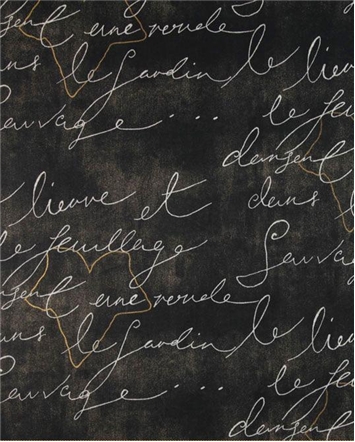 dansent une ronde le
dans le Jardin le lierre
Sauvage .... le feu
dansent
lierre et dans
le feuillage Sauvage
dansent une ronde
dans le Jardin le lierre
Sauvage .... le feu
dansent